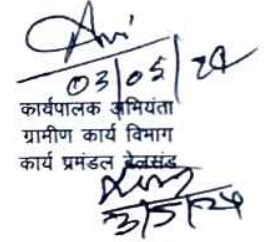 03/05/24
कार्यपालक अभियंता
ग्रामीण कार्य विभाग
कार्य प्रमंडल बेलसंड
3/5/24